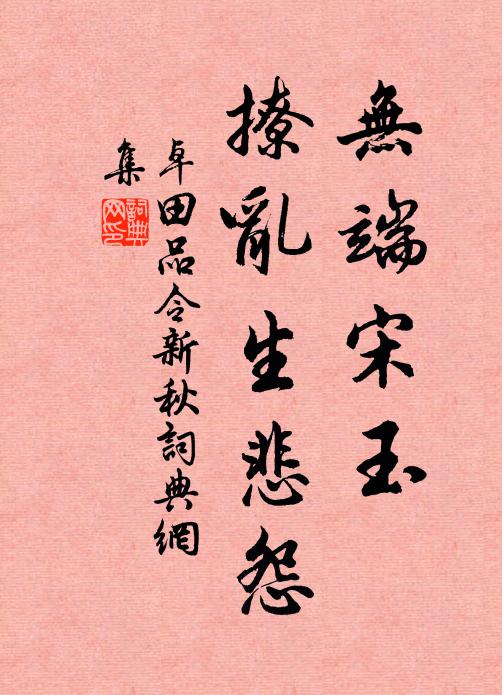 無端宋玉
撩亂生悲怨
卓田品令新秋詞典網
集
詞典
网印